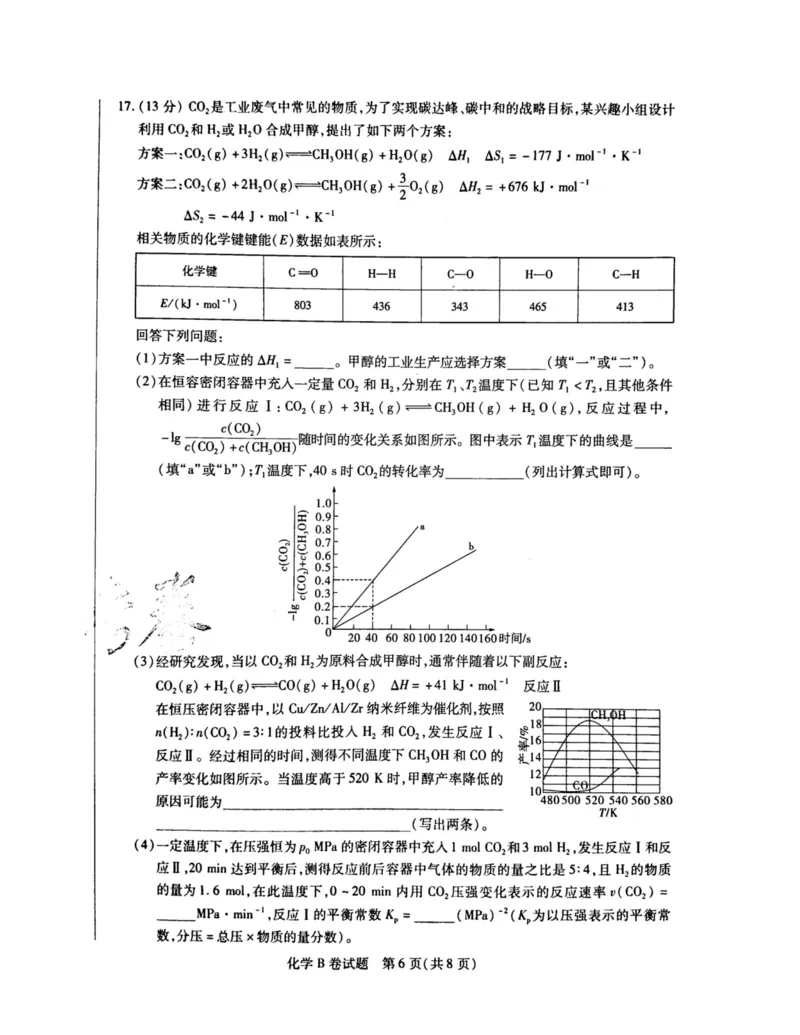 17.(13 分) CO₂是工业废气中常见的物质,为了实现碳达峰、碳中和的战略目标,某兴趣小组设计
利用 CO₂和 H₂或 H₂O 合成甲醇,提出了如下两个方案:
方案一:CO₂(g) +3H₂(g)⇌CH₃OH(g) +H₂O(g) ΔH₁ ΔS₁ = -177 J·mol⁻¹·K⁻¹
方案二:CO₂(g) +2H₂O(g)⇌CH₃OH(g) +3/2O₂(g) ΔH₂ = +676 kJ·mol⁻¹
ΔS₂ = -44 J·mol⁻¹·K⁻¹
相关物质的化学键键能(E)数据如表所示:
化学键 C=O H—H C—O H—O C—H
E/(kJ·mol⁻¹) 803 436 343 465 413
回答下列问题:
(1)方案一中反应的 ΔH₁ = ______。甲醇的工业生产应选择方案______(填“一”或“二”)。
(2)在恒容密闭容器中充入一定量 CO₂ 和 H₂,分别在 T₁、T₂温度下(已知 T₁ < T₂,且其他条件
相同) 进行反应 Ⅰ: CO₂ (g) + 3H₂ (g)⇌CH₃OH (g) + H₂O (g), 反应过程中,
-lg c(CO₂)/c(CO₂)+c(CH₃OH)随时间的变化关系如图所示。图中表示 T₁温度下的曲线是______
(填“a”或“b”);T₁温度下,40 s 时 CO₂的转化率为__________(列出计算式即可)。
-lg c(CO₂)/c(CO₂)+c(CH₃OH)
1.0
0.9
0.8
0.7
0.6
0.5
0.4
0.3
0.2
0.1
0
a
b
20 40 60 80 100 120 140 160 时间/s
(3)经研究发现,当以 CO₂和 H₂为原料合成甲醇时,通常伴随着以下副反应:
CO₂(g) +H₂(g)⇌CO(g) +H₂O(g) ΔH = +41 kJ·mol⁻¹ 反应Ⅱ
在恒压密闭容器中,以 Cu/Zn/Al/Zr 纳米纤维为催化剂,按照
n(H₂):n(CO₂) =3:1的投料比投入 H₂ 和 CO₂,发生反应Ⅰ、
反应Ⅱ。经过相同的时间,测得不同温度下 CH₃OH 和 CO 的
产率变化如图所示。当温度高于 520 K 时,甲醇产率降低的
原因可能为______________________________
______________________________(写出两条)。
产率/%
20
18
16
14
12
10
CH₃OH
CO
480 500 520 540 560 580
T/K
(4)一定温度下,在压强恒为 p₀ MPa 的密闭容器中充入 1 mol CO₂和 3 mol H₂,发生反应Ⅰ和反
应Ⅱ,20 min 达到平衡后,测得反应前后容器中气体的物质的量之比是 5:4,且 H₂的物质
的量为 1.6 mol,在此温度下,0 ~ 20 min 内用 CO₂压强变化表示的反应速率 v(CO₂) =
______MPa·min⁻¹,反应Ⅰ的平衡常数 Kₚ = ______(MPa)⁻²(Kₚ为以压强表示的平衡常
数,分压 = 总压 × 物质的量分数)。
化学 B 卷试题 第 6 页(共 8 页)